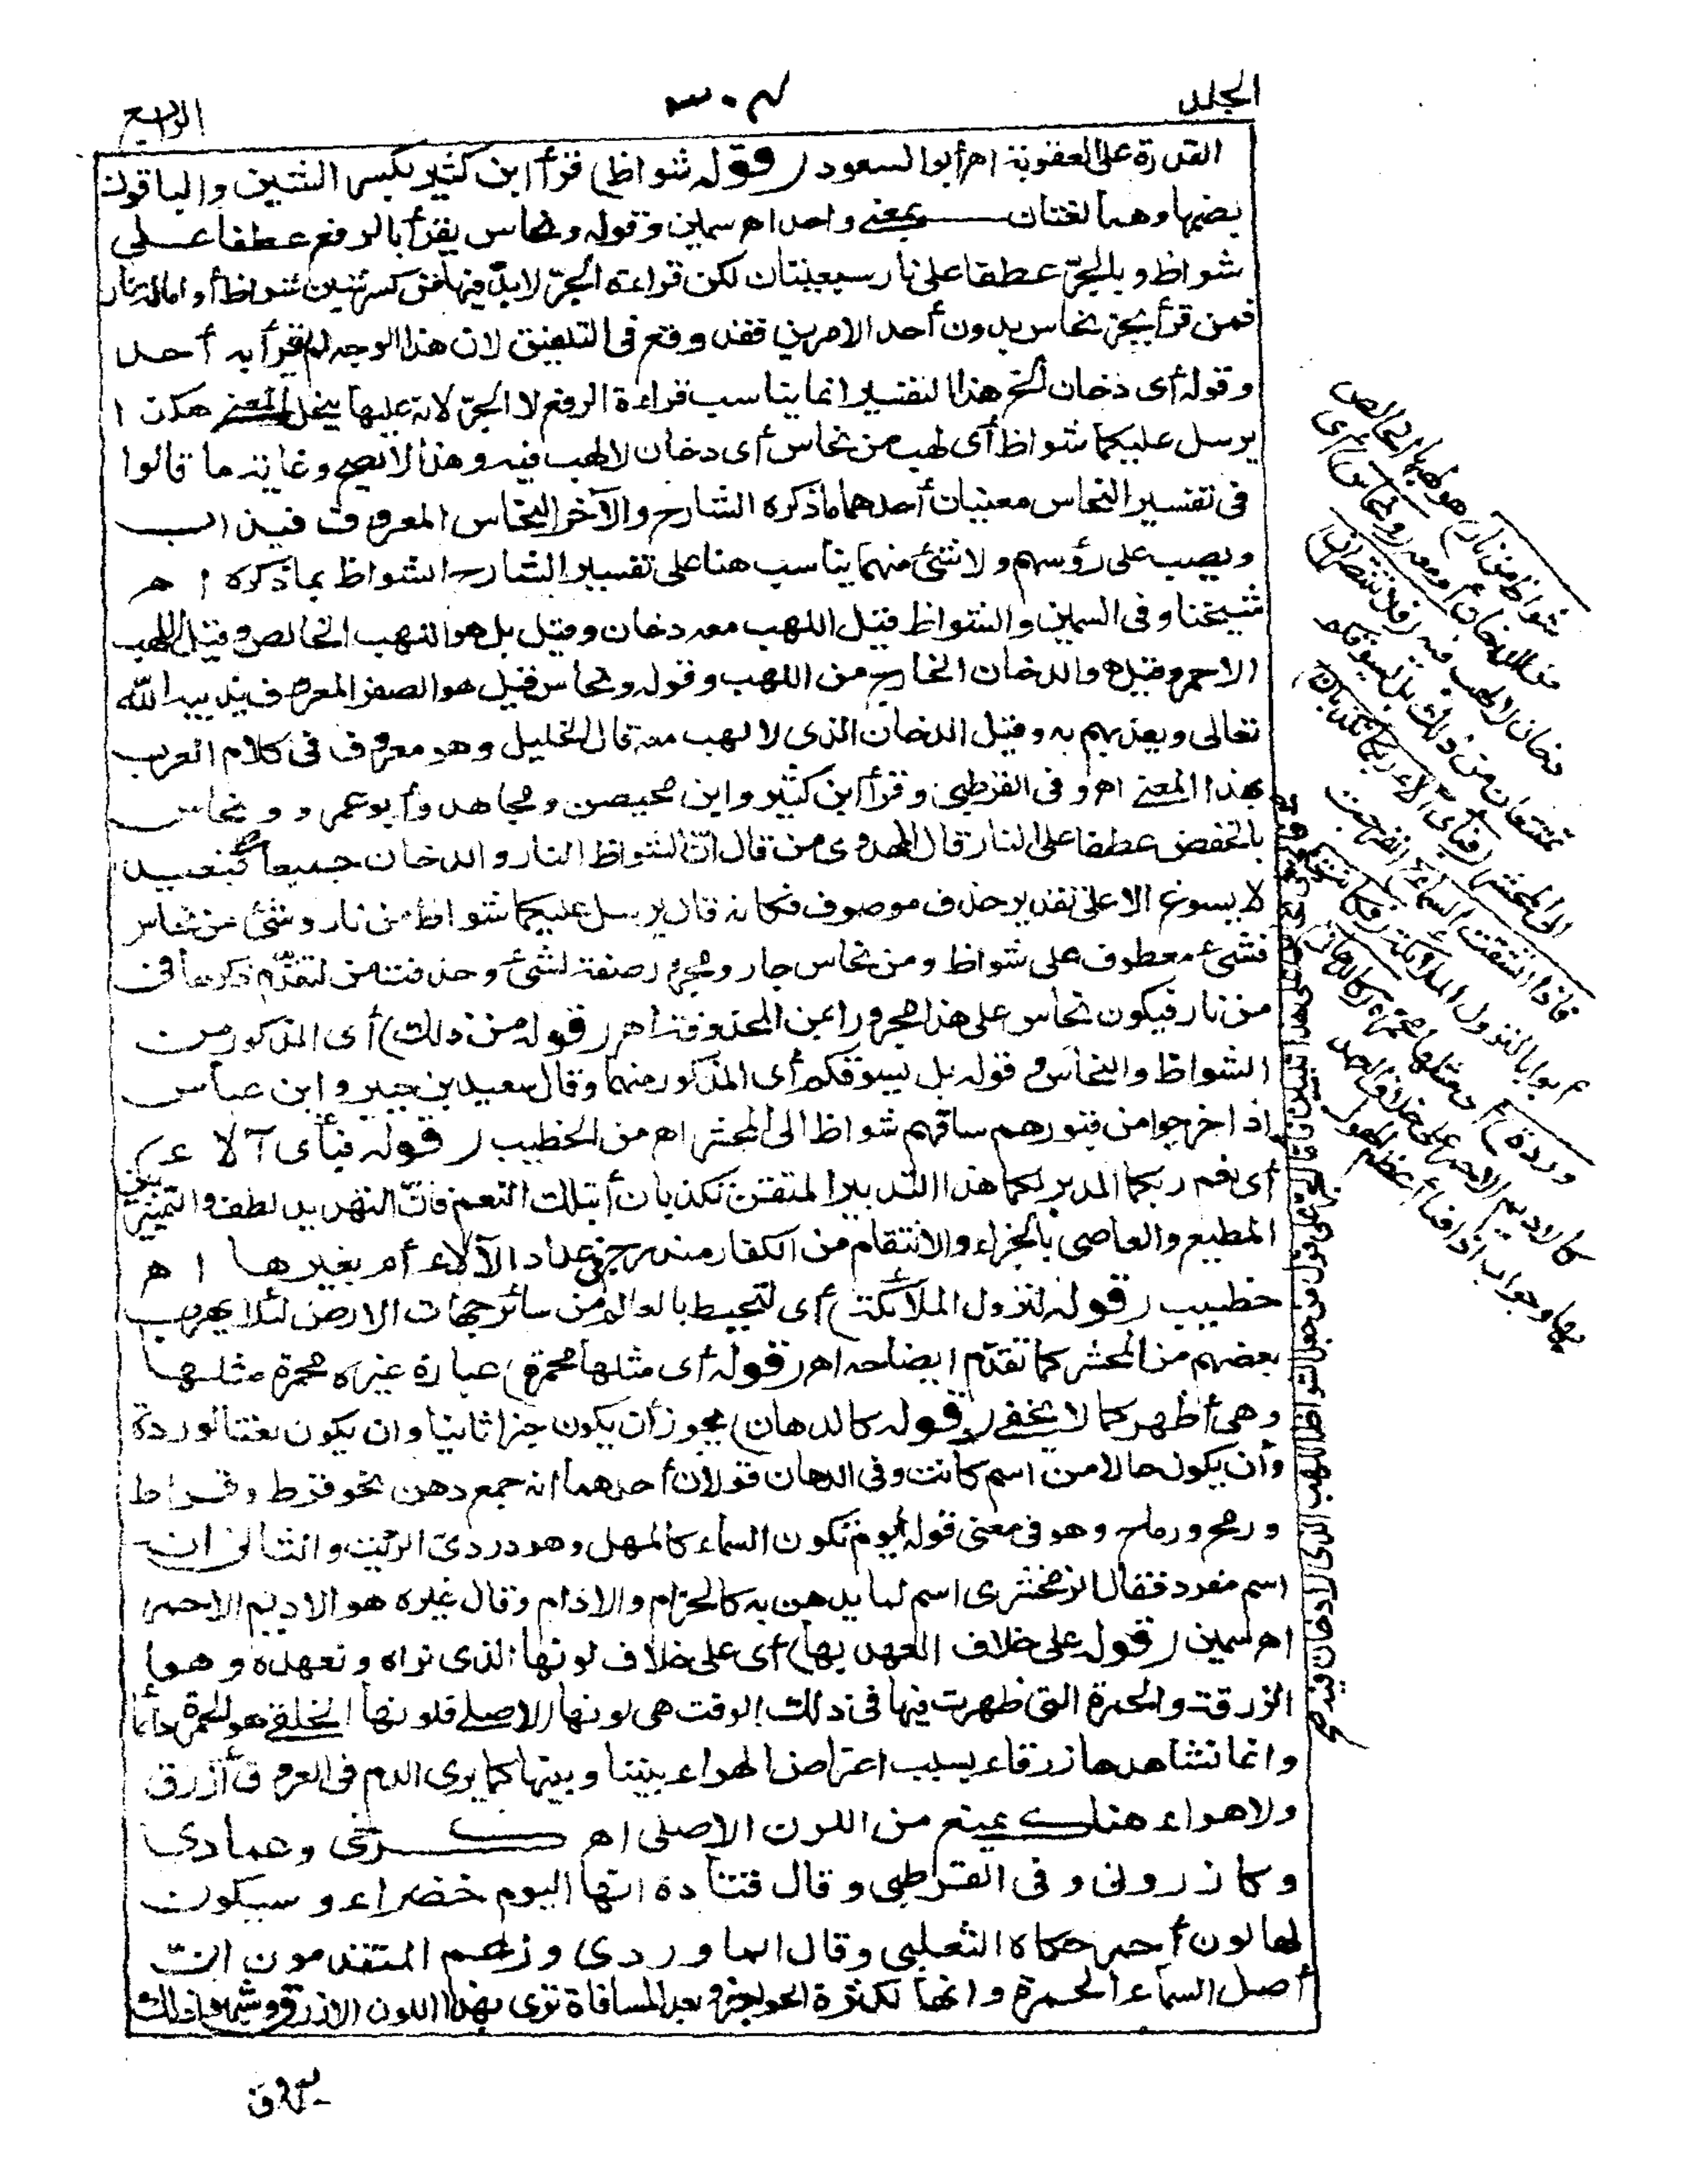 الجلد
٣٠٤
الرابع
القدرة على العقوبة اه أبو السعود (قوله شواظ) قرأ ابن كثير بكسر الشين والباقون
بضمها وهما لغتان بمعنى واحد اه سمين وقوله ونحاس يقرأ بالرفع عطفا على
شواظ وبالجرّ عطفا على نار سبعيتان لكن قراءة الجرّ لابدّ فيها من كسر شين شواظ أو امالة نار
فمن قرأ بجرّ نحاس بدون أحد الامرين فقد وقع فى التلفيق لان هذا الوجه لم يقرأ به أحد
وقوله أى دخان الخ هذا التفسير انما يناسب قراءة الرفع لا الجرّ لانه عليها ينحل المعنى هكذا
يرسل عليكما شواظ أى لهب من نحاس أى دخان لا لهب فيه وهذا لا يصح وغاية ما قالوا
فى تفسير النحاس معنيان أحدهما ما ذكره الشارح والآخر النحاس المعروف فيذاب
ويصب على رؤسهم ولا شئ منهما يناسب هنا على تفسير الشارح الشواظ بما ذكره اه
شيخنا وفى السمين والشواظ قيل اللهب معه دخان وقيل بل هو اللهب الخالص وقيل اللهب
الاحمر وقيل هو الدخان الخارج من اللهب وقوله ونحاس قيل هو الصفر المعروف يذيبه الله
تعالى ويعذبهم به وقيل الدخان الذى لا لهب معه قال الخليل وهو معروف فى كلام العرب
بهذا المعنى اه وفى القرطبى وقرأ ابن كثير وابن محيصن ومجاهد وأبو عمرو ونحاس
بالخفض عطفا على النار قال المهدوى من قال انّ الشواظ النار والدخان جميعا فبعيد
لا يسوغ الا على تقدير حذف موصوف فكانه قال يرسل عليكما شواظ من نار وشئ من نحاس
فشئ معطوف على شواظ ومن نحاس جار ومجرور صفة لشئ وحذفت من لتقدّم ذكرها فى
من نار فيكون نحاس على هذا مجرورا بمن المحذوفة اه (قوله من ذلك) أى المذكور من
الشواظ والنحاس وقوله بل يسوقكم أى المذكور منهما وقال سعيد بن جبير وابن عباس
اذا خرجوا من قبورهم ساقهم شواظ الى المحشر اه من الخطيب (قوله فبأى آلاء)
أى نعم ربكما المدبر لكما هذا التدبير المتقن تكذبان أبتلك النعم فانّ التهديد لطف والتمييز بين
المطيع والعاصى بالجزاء والانتقام من الكفار مندرج فى عداد الآلاء أم بغيرها اه
خطيب (قوله لنزول الملائكة) أى لتحيط بالعالم من سائر جهات الارض لئلا يهرب
بعضهم من المحشر كما تقدّم ايضاحه اه (قوله أى مثلها محمرة) عبارة غيره محمرة مثلها
وهى أظهر كما لا يخفى (قوله كالدهان) يجوز أن يكون خبرا ثانيا وان يكون نعتا لوردة
وأن يكون حالا من اسم كانت وفى الدهان قولان أحدهما انه جمع دهن نحو قرط وقراط
ورمح ورماح وهو فى معنى قوله يوم تكون السماء كالمهل وهو دردىّ الزيت والثانى انه
اسم مفرد فقال الزمخشرى اسم لما يدهن به كالحزام والادام وقال غيره هو الاديم الاحمر
اه سمين (قوله على خلاف العهد بها) أى على خلاف لونها الذى نراه ونعهده وهو
الزرقة والحمرة التى ظهرت فيها فى ذلك الوقت هى لونها الاصلى فلونها الخلقى هو الحمرة دائما
وانما نشاهدها زرقاء بسبب اعتراض الهواء بيننا وبينها كما يرى الدم فى العروق أزرق
ولا هواء هناك يمنع من اللون الاصلى اه كرخى وعمادى
وكازرونى وفى القرطبى وقال قتادة انها اليوم خضراء وسيكون
لها لون أحمر حكاه الثعلبى وقال الماوردى وزعم المتقدمون انّ
أصل السماء الحمرة وانها لكثرة الحواجز وبعد المسافة ترى بهذا اللون الازرق وشبهوا ذلك
شواظ من نار) هو لهبها الخالص
من الدخان أو معه (ونحاس) أى
دخان لا لهب فيه (فلا تنتصران)
تمتنعان من ذلك بل يسوقكم
الى المحشر (فبأى آلاء ربكما تكذبان)
فاذا انشقت السماء) انفرجت
أبوابا لنزول الملائكة (فكانت
وردة) أى مثلها محمرة (كالدهان)
كالاديم الاحمر على خلاف العهد
بها وجواب اذا فما أعظم الهول